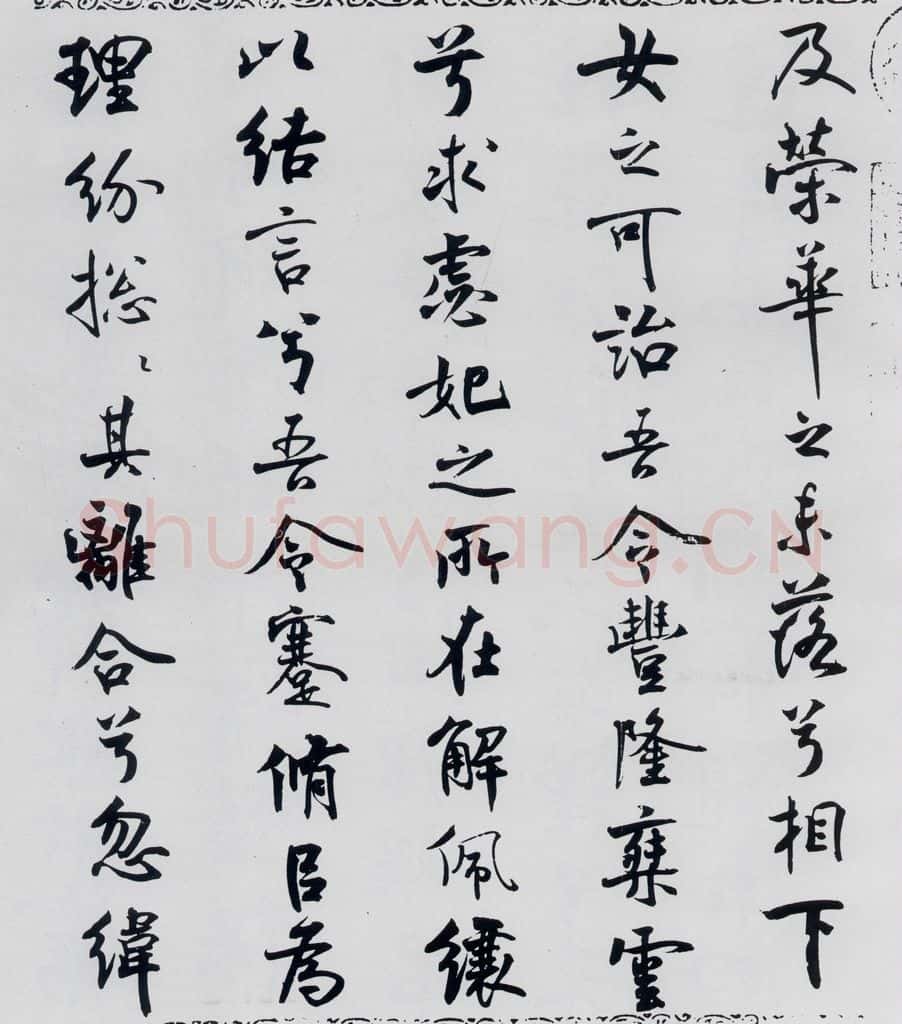 及榮華之未落兮相下
女之可詒吾令豐隆椉雲
兮求虙妃之所在解佩纕
以結言兮吾令蹇脩吕為
理紛総〻其離合兮忽緯
Shufawang.CN